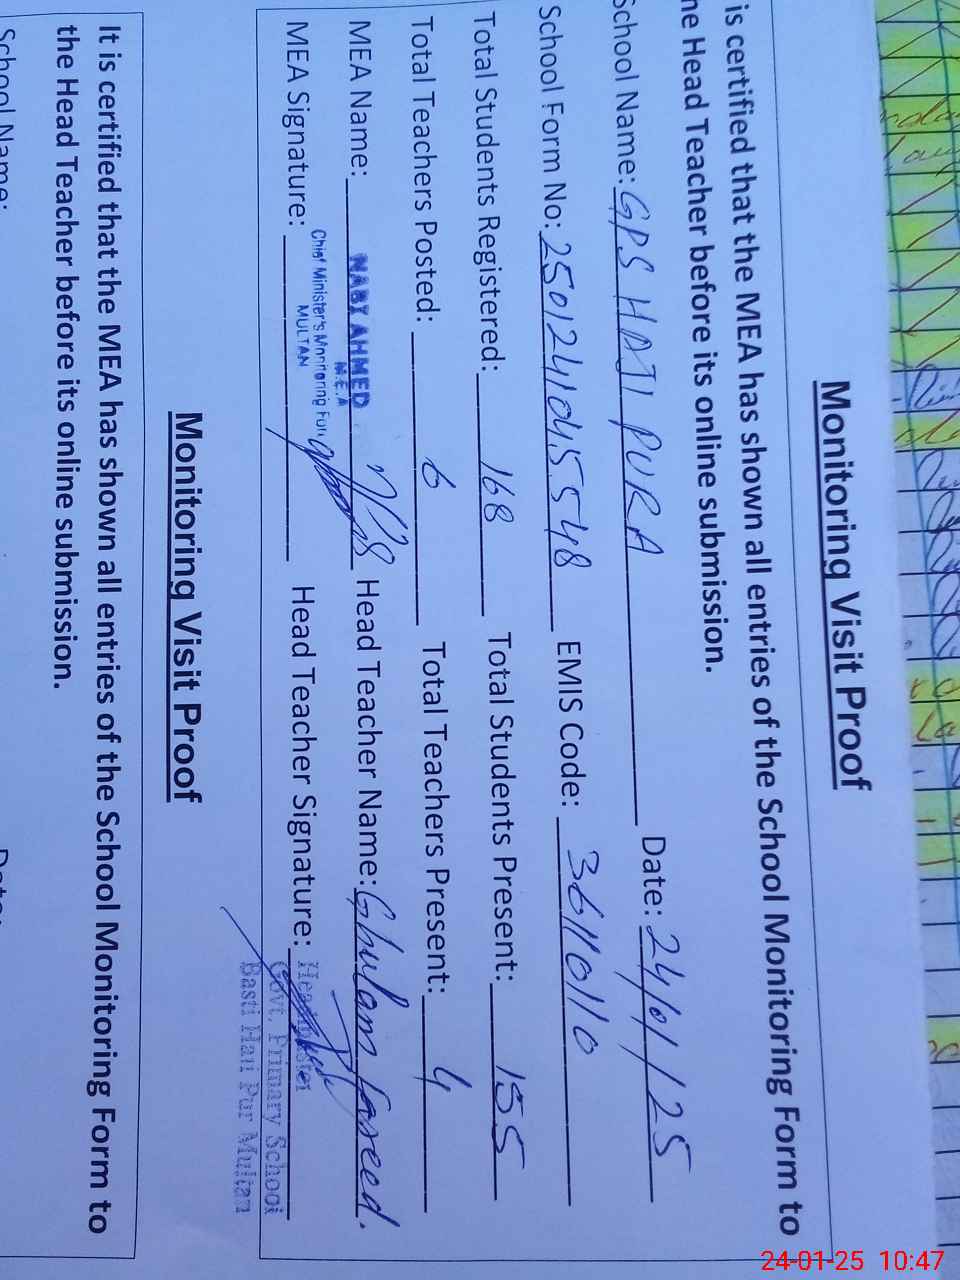 Monitoring Visit Proof
is certified that the MEA has shown all entries of the School Monitoring Form to
he Head Teacher before its online submission.
School Name: GPS HAJI PURA Date: 24/01/25
School Form No: 25012410455548 EMIS Code: 36110110
Total Students Registered: 168 Total Students Present: 155
Total Teachers Posted: 6 Total Teachers Present: 4
MEA Name: AHMED Head Teacher Name: Ghulam fareed.
M.E.A
Chief Minister's Monitoring
MULTAN
MEA Signature: Head Teacher Signature:
Headmaster
Govt. Primary School
Basti Haji Pur Multan
Monitoring Visit Proof
It is certified that the MEA has shown all entries of the School Monitoring Form to
the Head Teacher before its online submission.
School Name: Date:
24-01-25 10:47